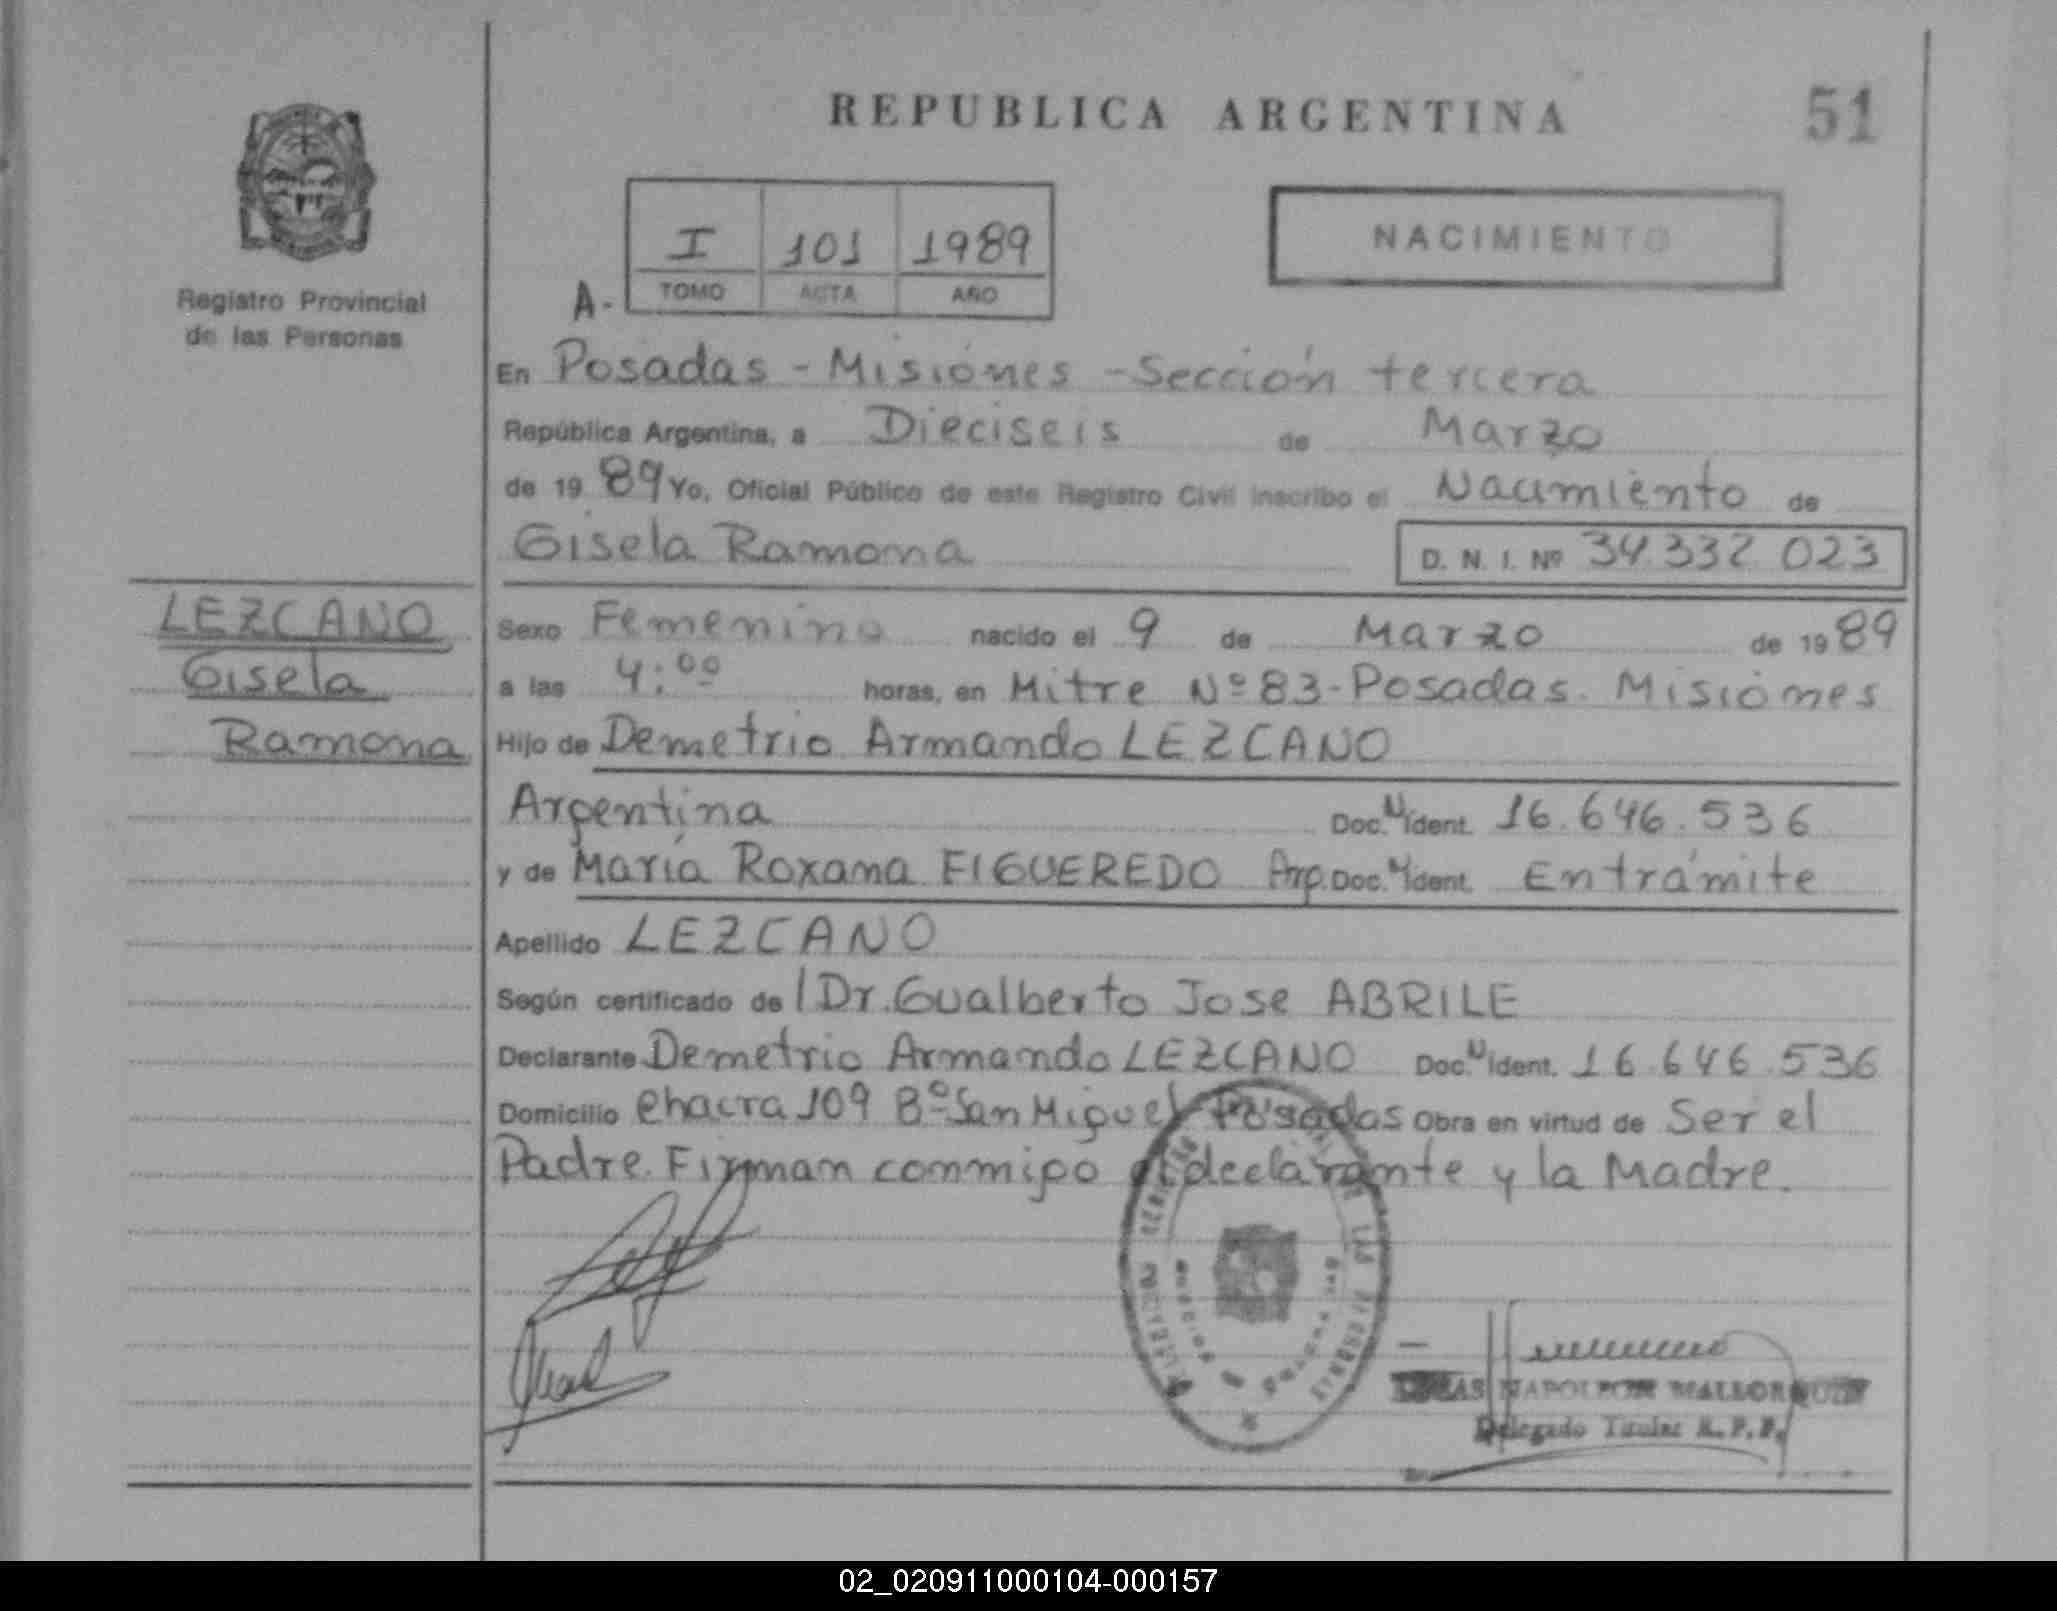 REPUBLICA ARGENTINA
51
I 101 1989
TOMO ACTA AÑO
A-
NACIMIENTO
Registro Provincial
de las Personas
En Posadas - Misiones - Sección tercera
República Argentina, a Dieciseis de Marzo
de 1989 Yo, Oficial Público de este Registro Civil inscribo el Nacimiento de
Gisela Ramona
D. N. I. Nº 34.332.023
LEZCANO
Gisela
Ramona
Sexo Femenino nacido el 9 de Marzo de 1989
a las 4:00 horas, en Mitre Nº 83-Posadas. Misiones
Hijo de Demetrio Armando LEZCANO
Argentina Doc. N Ident. 16.646.536
y de María Roxana FIGUEREDO Arg. Doc. N Ident. En trámite
Apellido LEZCANO
Según certificado de l Dr. Gualberto Jose ABRILE
Declarante Demetrio Armando LEZCANO Doc. N Ident. 16.646.536
Domicilio Chacra 109 Bº San Miguel Posadas Obra en virtud de Ser el
Padre. Firman conmigo el declarante y la Madre.
NAPOLEON MALLORQUIN
Delegado Titular R.P.P.
02_020911000104-000157